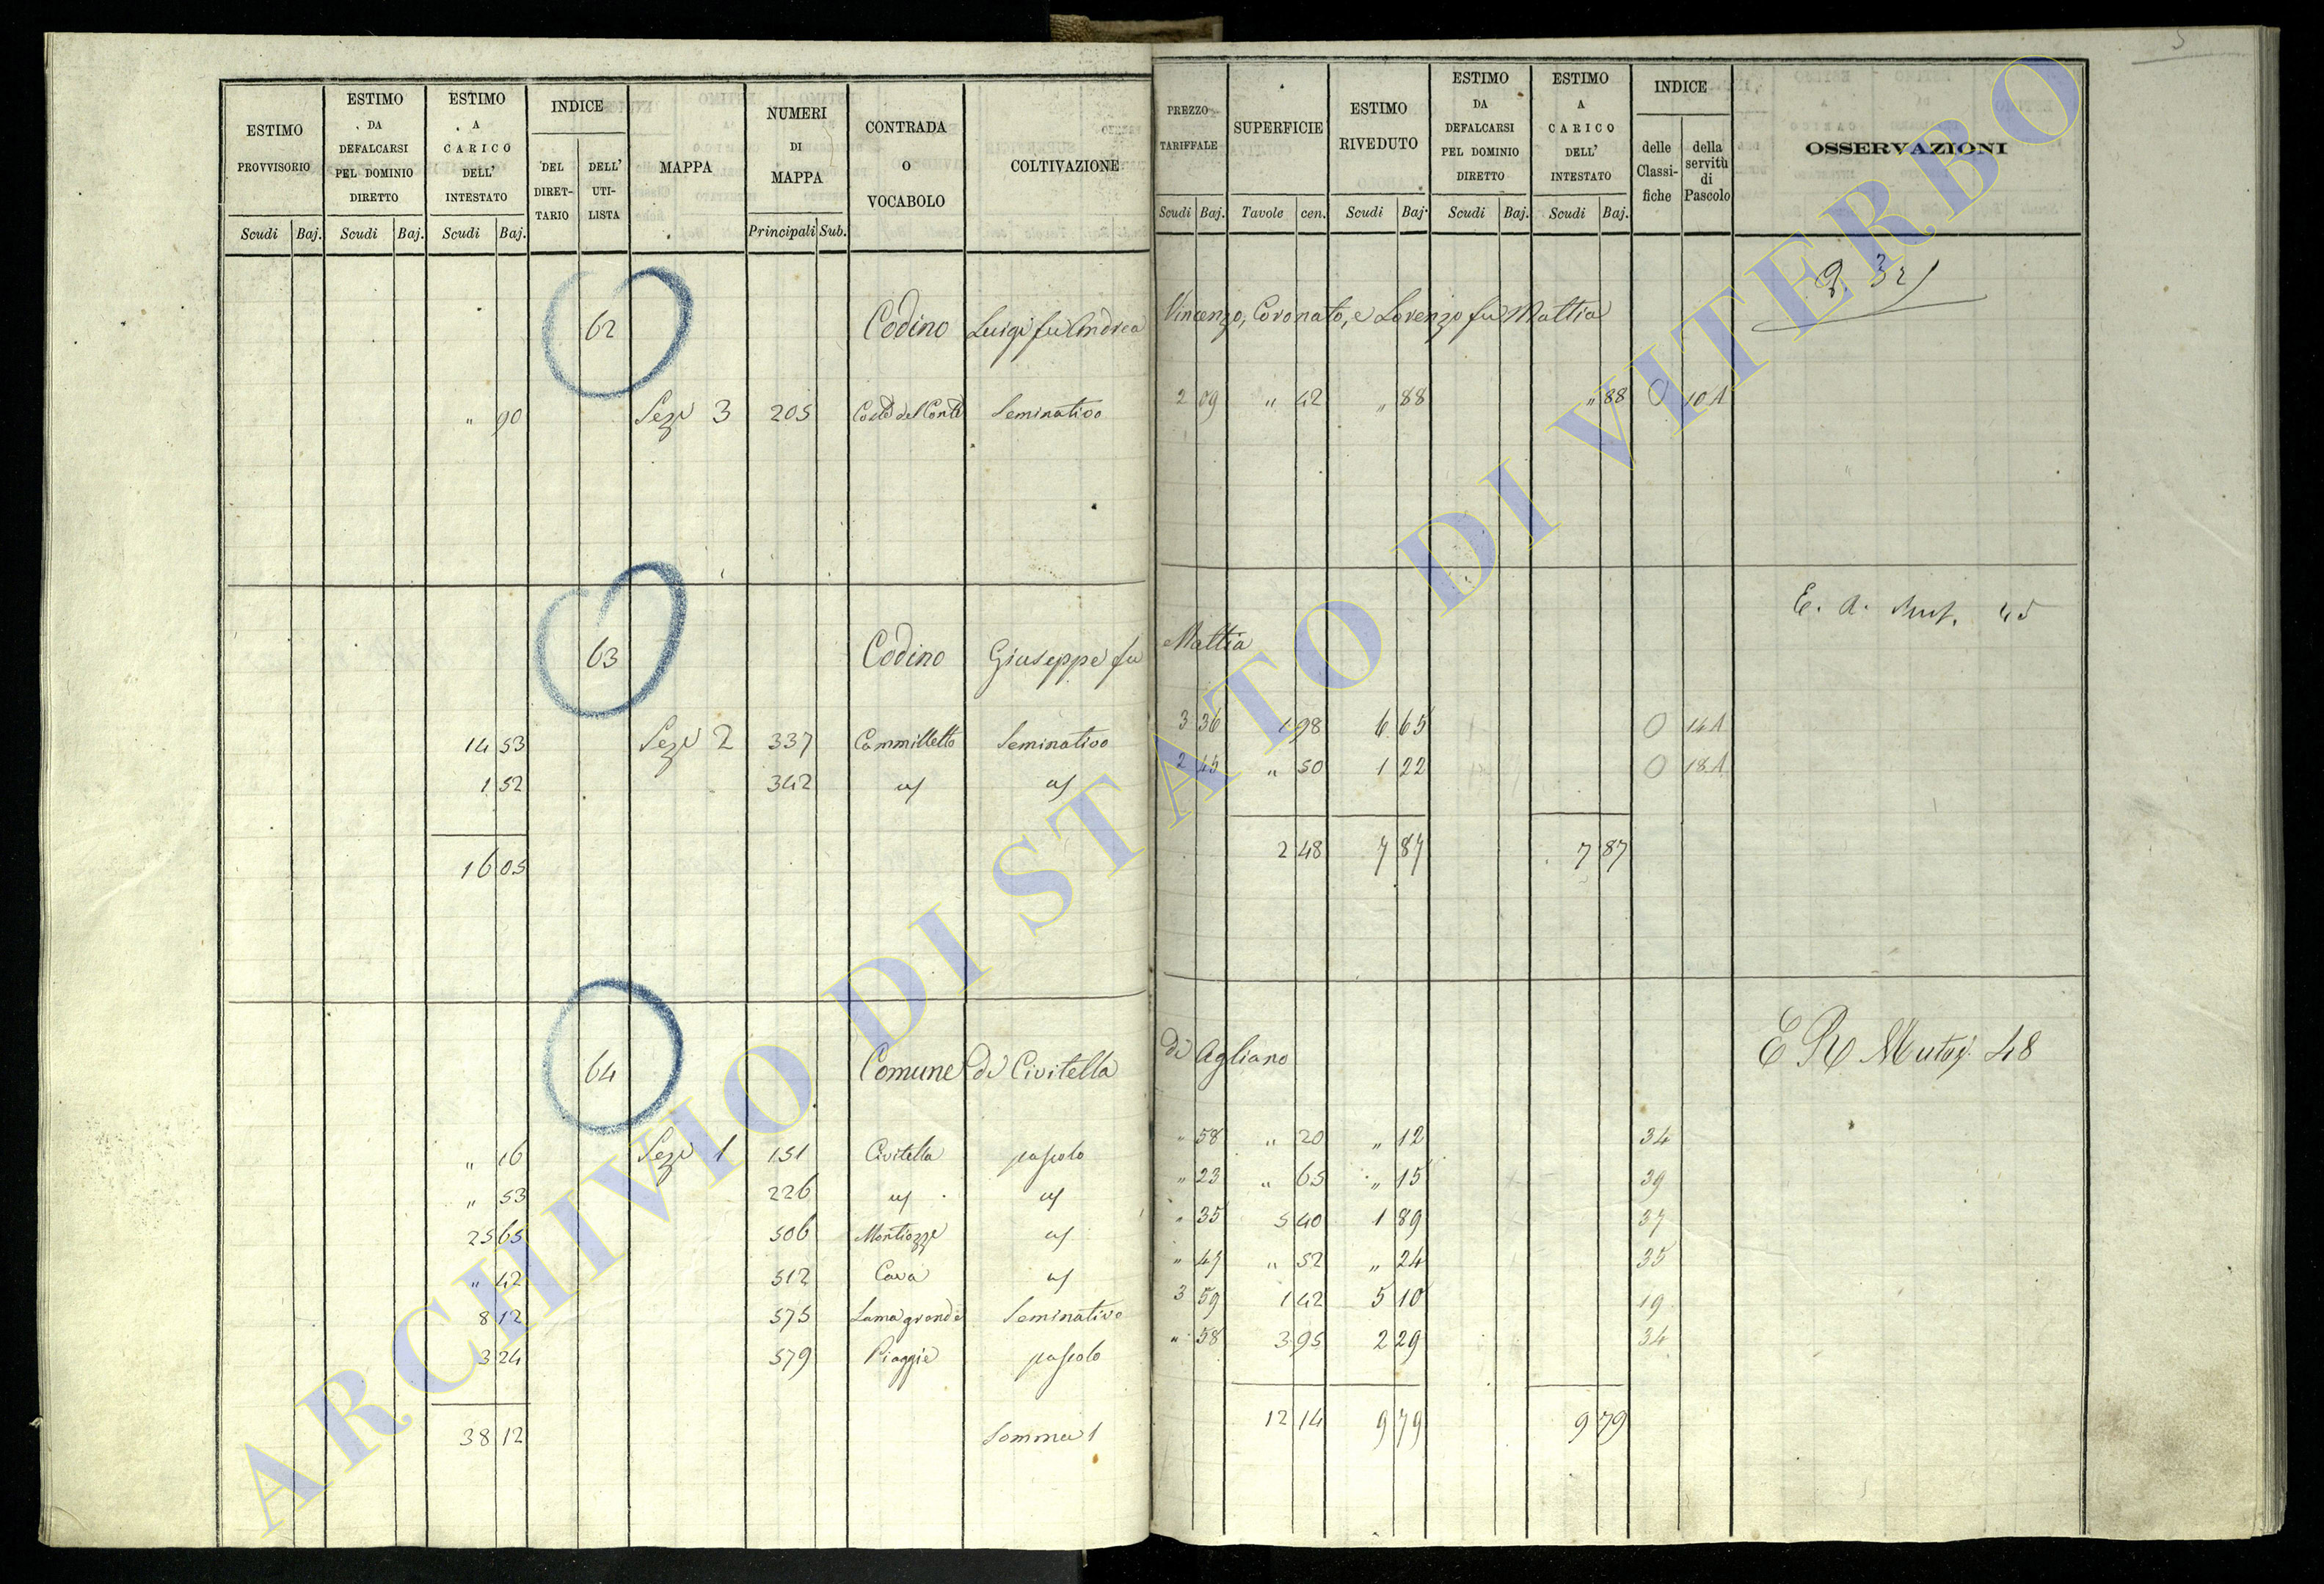 ESTIMO PROVVISORIO
ESTIMO DA DEFALCARSI PEL DOMINIO DIRETTO
ESTIMO A CARICO DELL' INTESTATO
INDICE
DEL DIRETTARIO
DELL' UTILISTA
MAPPA
NUMERI DI MAPPA
CONTRADA O VOCABOLO
COLTIVAZIONE
PREZZO TARIFFALE
SUPERFICIE
ESTIMO RIVEDUTO
ESTIMO DA DEFALCARSI PEL DOMINIO DIRETTO
ESTIMO A CARICO DELL' INTESTATO
INDICE
delle Classifiche
della servitù di Pascolo
OSSERVAZIONI
Scudi Baj. Scudi Baj. Scudi Baj. Principali Sub. Scudi Baj. Tavole cen. Scudi Baj. Scudi Baj. Scudi Baj.
62 Codino Luigi fu Andrea Vincenzo, Coronato, e Lorenzo fu Mattia
" 90 Sez 3 205 Seminativo 2 09 " 42 " 88 " 88 O 10 A
63 Codino Giuseppe fu Mattia E. A. 45
14 53 Sez 2 337 Cammilletto Seminativo 3 36 1 98 6 65 O 14 A
1 52 342 " 50 1 22 O 18 A
16 05 2 48 7 87 7 87
64 Comune di Civitella di Agliano E R Mutaz. 48
" 16 Sez 1 151 Civitella pascolo " 58 " 20 " 12 34
" 53 226 " 23 " 65 " 15 39
25 65 506 Montiozze " 35 5 40 1 89 37
" 42 512 Cava " 47 " 52 " 24 35
8 12 575 Lama grande Seminativo 3 59 1 42 5 10 19
3 24 579 Piaggie pascolo " 58 3 95 2 29 34
38 12 Somma 12 14 9 79 9 79
ARCHIVIO DI STATO DI VITERBO